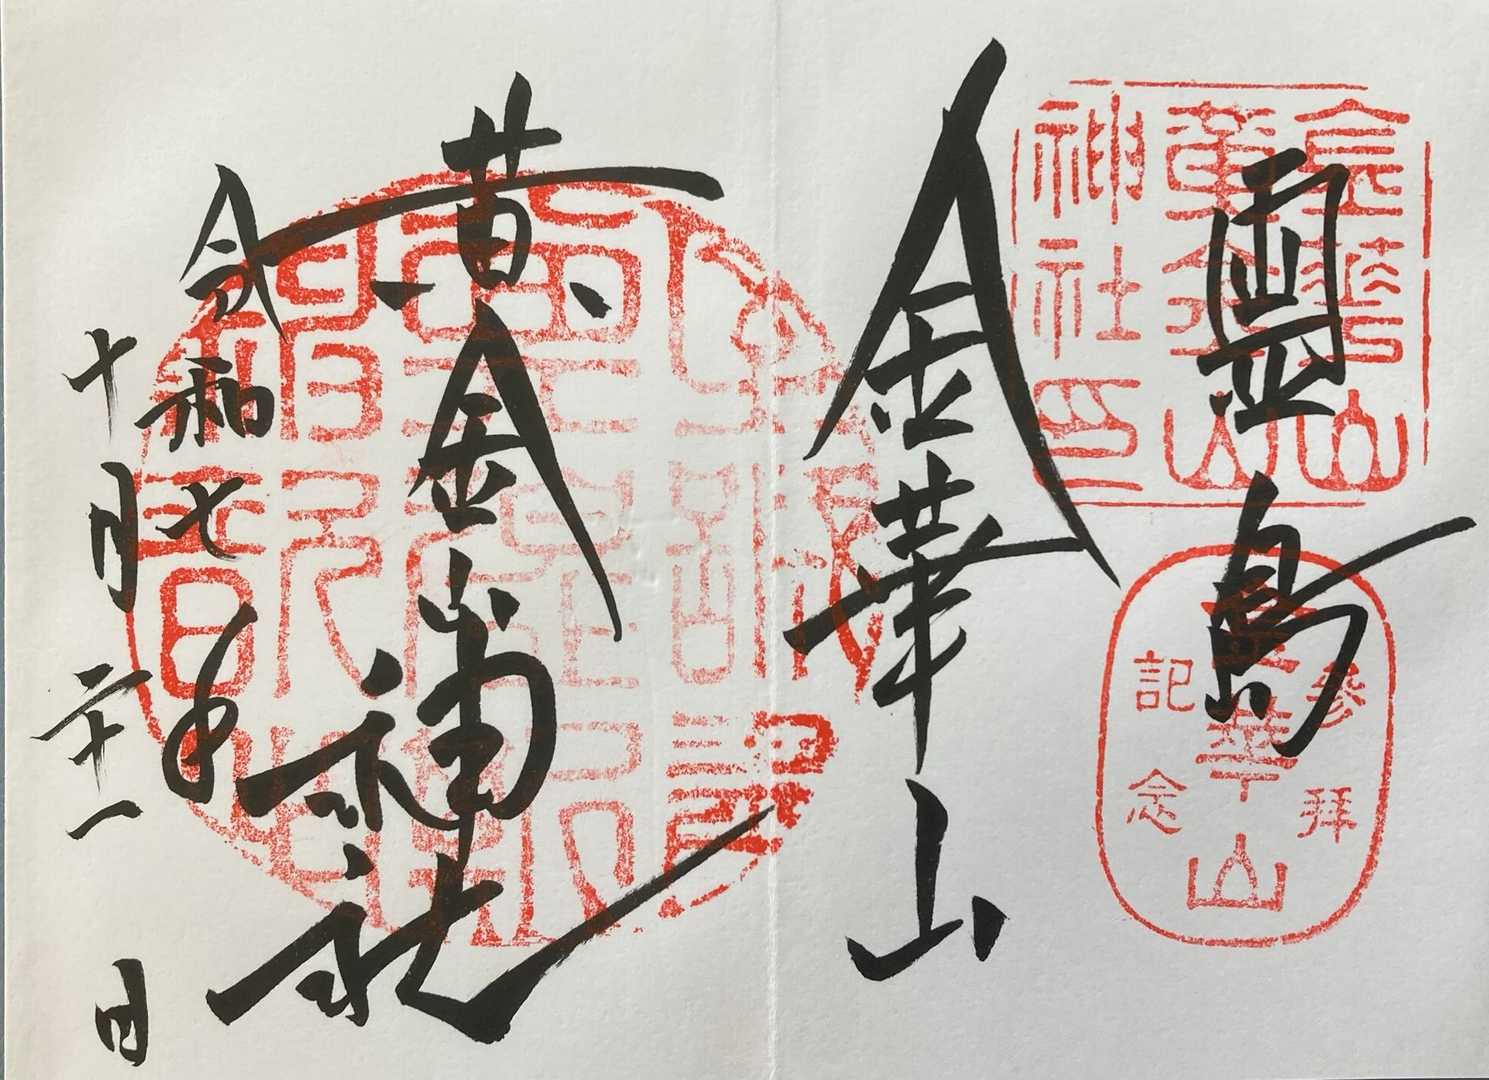 霊島
金華山
黄金山神社
令和七年
十月二十一日
金華山
黄金山
神社印
參拝
金華山
記念